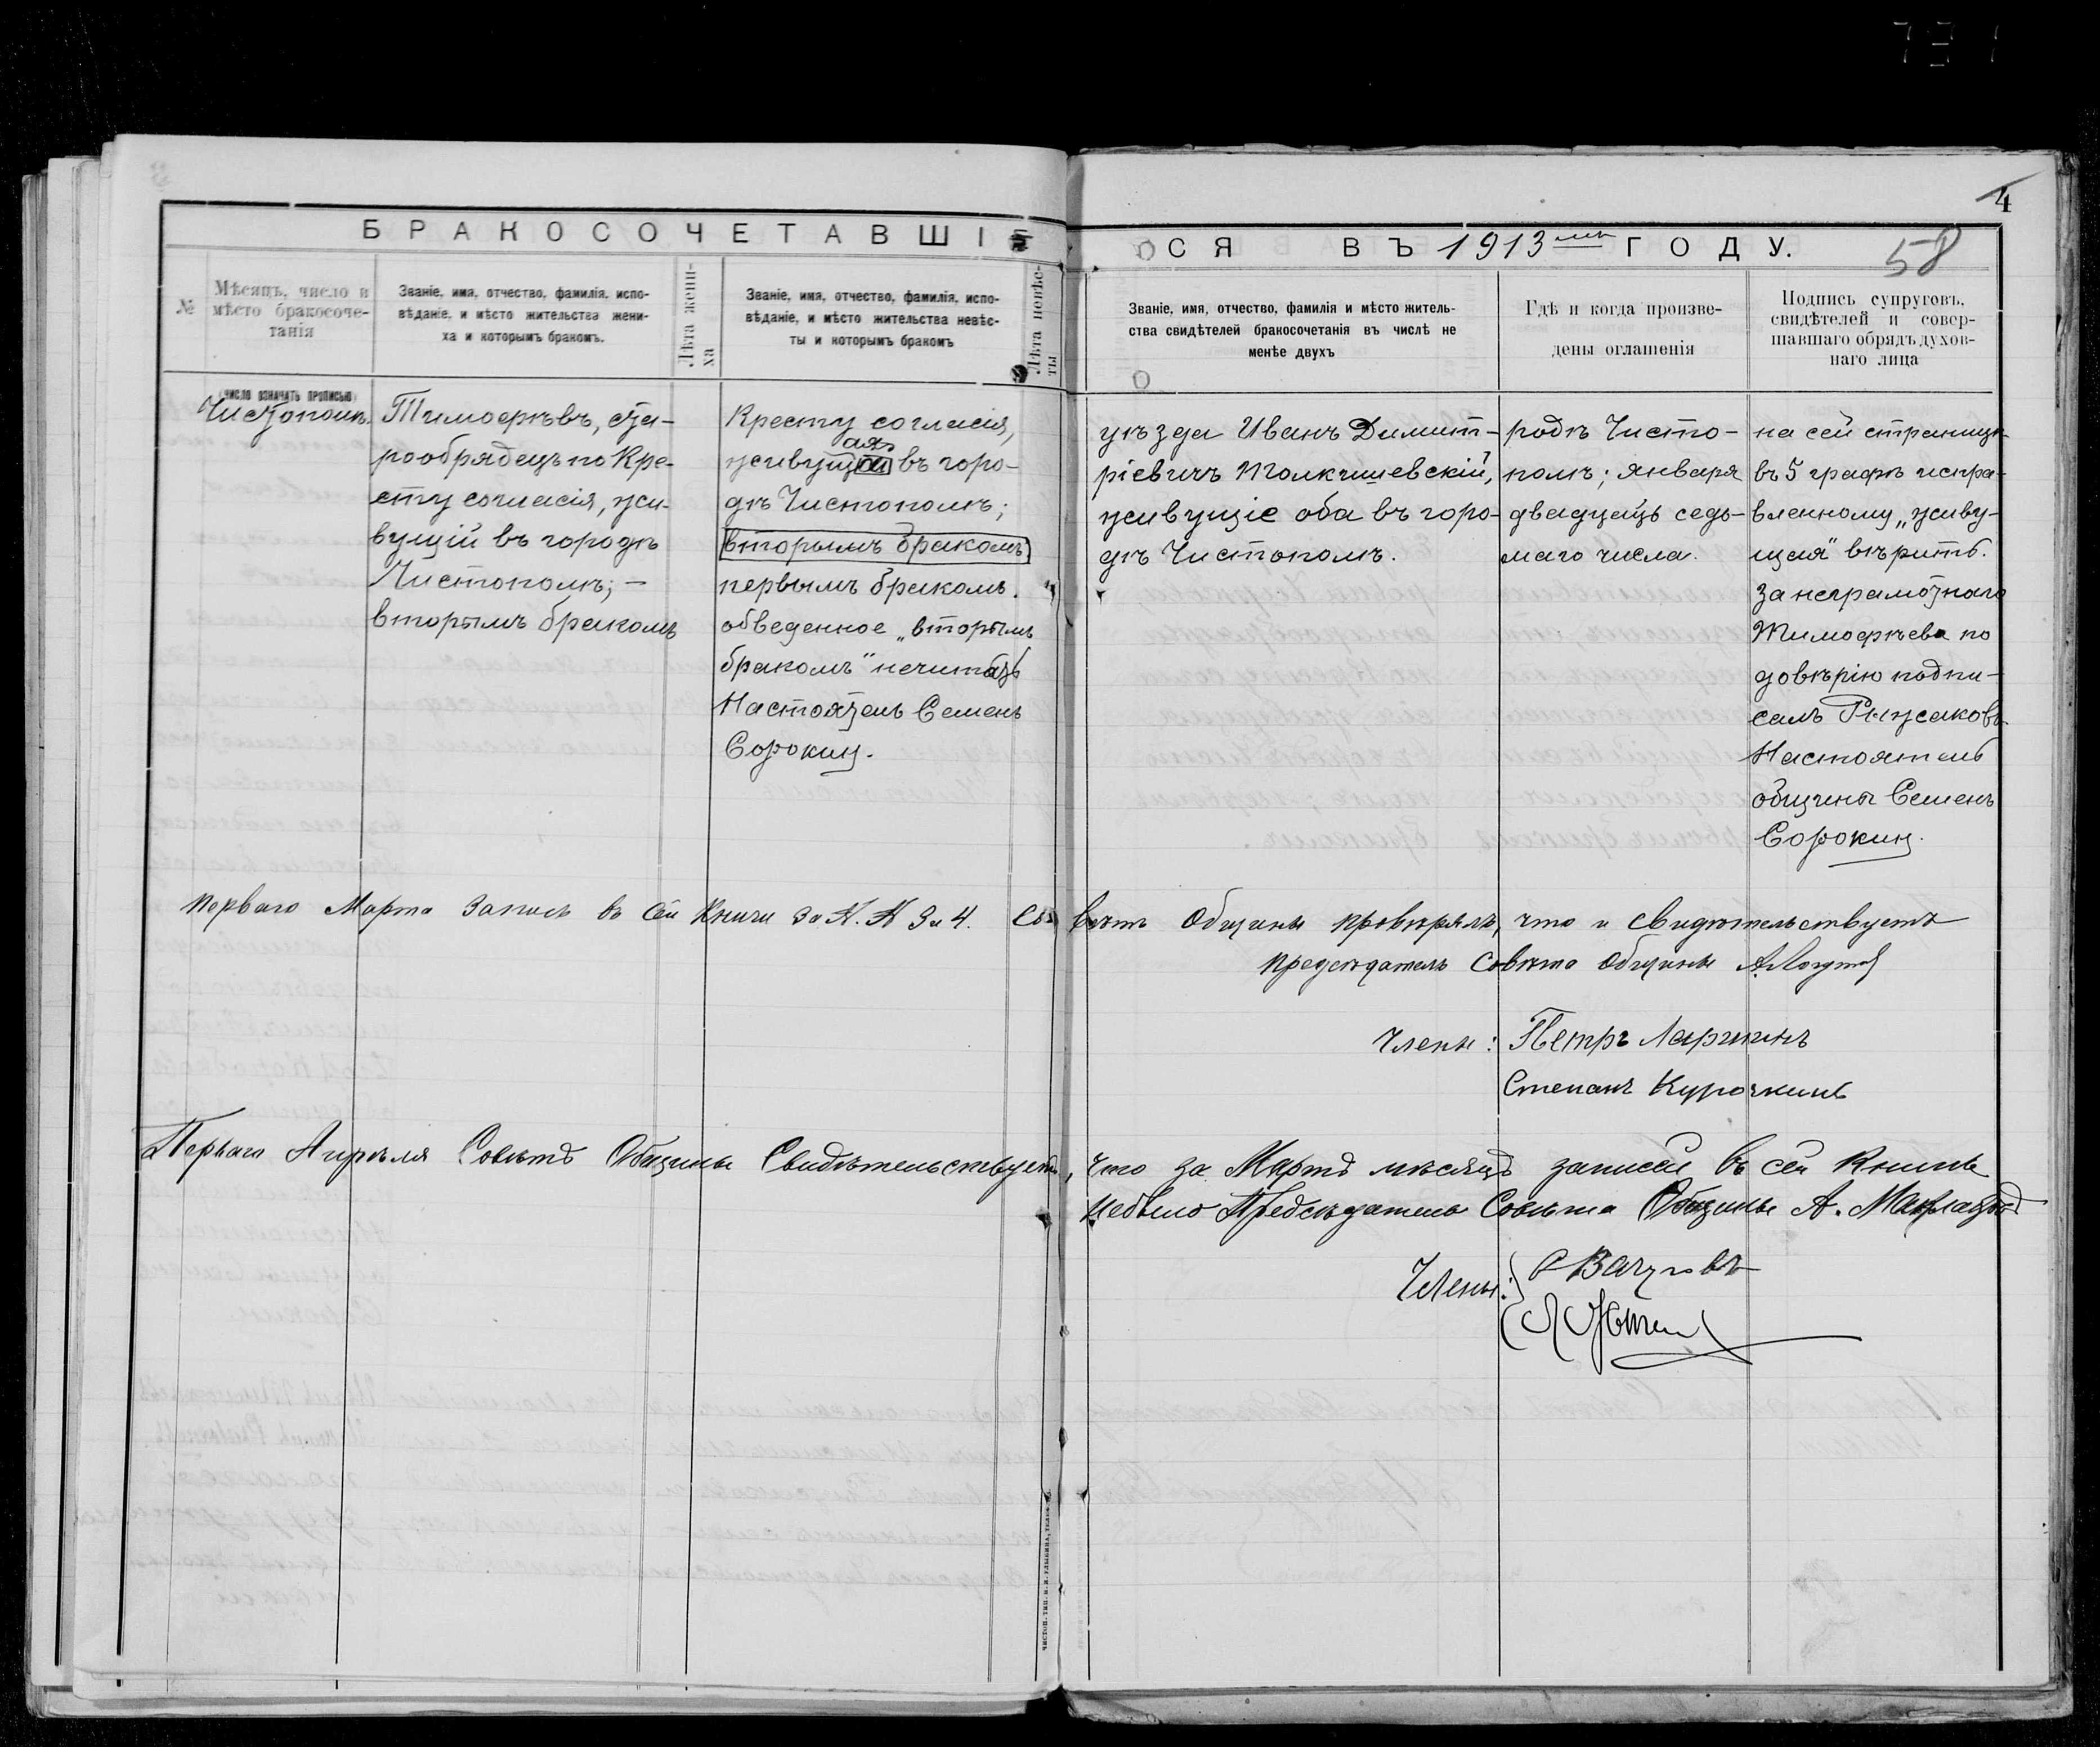 4
БРАКОСОЧЕТАВШІЕ
СЯ ВЪ 1913 мъ ГОДУ.
58
№
Мѣсяцъ, число и
мѣсто бракосоче-
танія
(число означать прописью)
Званіе, имя, отчество, фамилія, испо-
вѣданіе, и мѣсто жительства жени-
ха и которымъ бракомъ.
Лѣта жени-
ха
Званіе, имя, отчество, фамилія, испо-
вѣданіе, и мѣсто жительства невѣс-
ты и которымъ бракомъ
Лѣта невѣс-
ты
Званіе, имя, отчество, фамилія и мѣсто житель-
ства свидѣтелей бракосочетанія въ числѣ не
менѣе двухъ
Гдѣ и когда произве-
дены оглашенія
Подпись супруговъ,
свидѣтелей и совер-
шавшаго обрядъ духов-
наго лица
Чистополѣ.
Тимофѣевъ, ста-
рообрядецъ по Кре-
сту согласія, жи-
вущій въ городѣ
Чистополѣ; —
вторымъ бракомъ
Кресту согласія,
ая
живущ въ горо-
дѣ Чистополѣ;
вторымъ бракомъ
первымъ бракомъ.
обведенное „вторымъ
бракомъ" нечитать
Настоятель Семенъ
Сорокин.
уѣзда Иванъ Димит-
ріевичъ Толкишевскій,
живущіе оба въ горо-
дѣ Чистополѣ.
родѣ Чисто-
полѣ; января
двадцать седь-
маго числа.
на сей страницѣ
въ 5 графѣ испра-
вленному „живу-
щая" вѣрить.
За неграмотнаго
Тимофѣева по
довѣрію подпи-
салъ Рыжаковъ.
Настоятель
общины Семенъ
Сорокин.
Перваго Марта Запись въ сей Книги за №. № 3 и 4. Со
вѣтъ Общины провѣрялъ, что и свидѣтельствуетъ
Предсѣдатель Совѣта Общины
Члены: Петръ Ларинъ
Степанъ Курочкинъ
Перваго Апрѣля Совѣтъ Общины Свидѣтельствуетъ,
что за Мартъ мѣсяцъ записей въ сей Книгѣ
небыло Предсѣдатель Совѣта Общины А.
Члены: